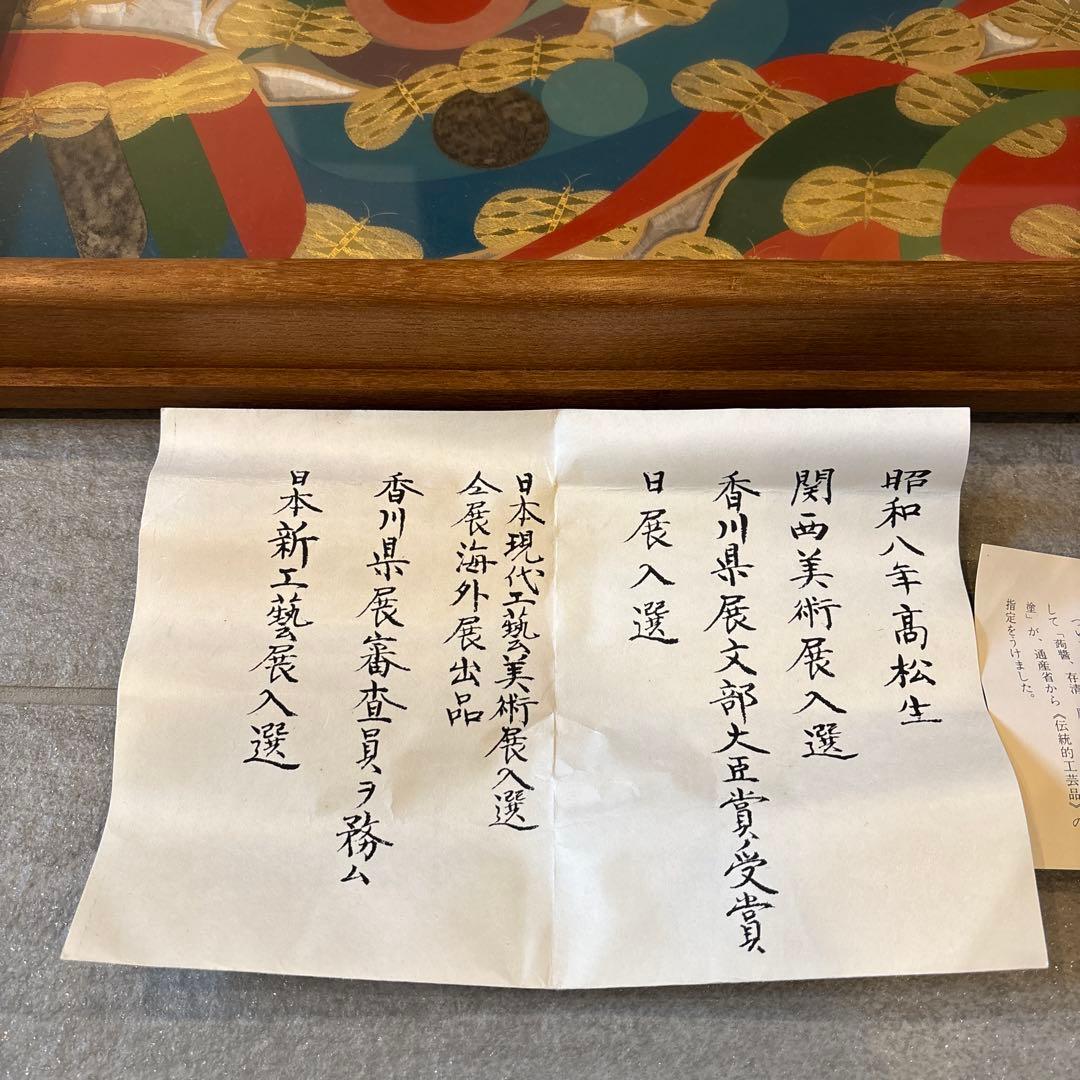 昭和八年高松生
関西美術展入選
香川県展文部大臣賞受賞
日展入選
日本現代工藝美術展入選
仝展海外展出品
香川県展審査員ヲ務ム
日本新工藝展入選
して「蒟醬、存清、
塗」が、通産省から《伝統的工芸品》の
指定をうけました。